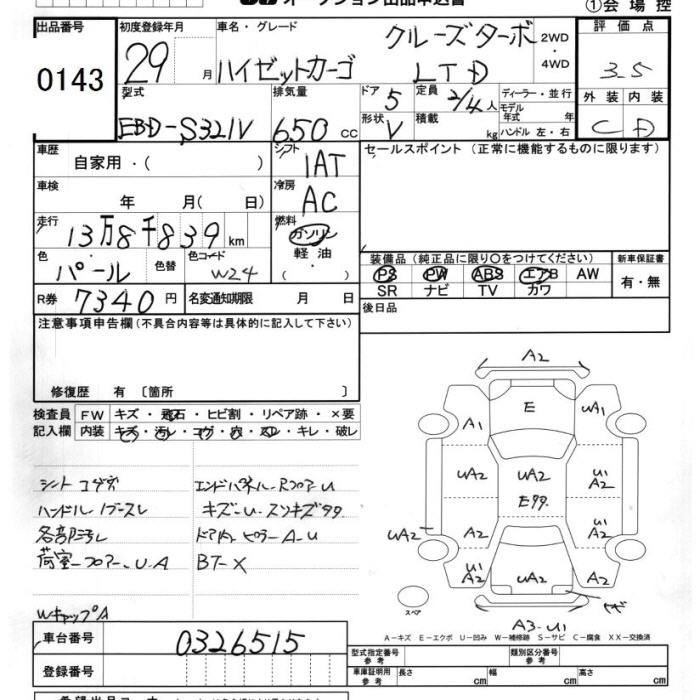 オークション出品申込書
①会場控
出品番号
0143
初度登録年月
29 月
車名・グレード
ハイゼットカーゴ
クルーズターボ
LTD
2WD
・
4WD
評価点
3.5
外装 内装
C D
型式
EBD-S321V
排気量
650 cc
ドア
5
定員
2/4人
形状
V
積載
kg
ディーラー・並行
モデル年式 年
ハンドル 左・右
車歴
自家用・( )
シフト
IAT
セールスポイント (正常に機能するものに限ります)
車検
年 月( 日)
冷房
AC
走行
13万8千839km
燃料
ガソリン
軽油
( ・ )
色
パール
色替
色コード
W24
装備品(純正品に限り○をつけてください)
PS PW ABS エアB AW
SR ナビ TV カワ
新車保証書
有・無
R券 7340円
名変通知期限 月 日
後日品
注意事項申告欄(不具合内容等は具体的に記入して下さい)
修復歴 有〔箇所 〕
検査員
記入欄
FW キズ・飛石・ヒビ割・リペア跡・×要
内装 キズ・汚レ・コゲ・穴・スレ・キレ・破レ
シートコゲ穴
ハンドル
各部汚レ
荷室フロアーU.A
WキャップA
エンドパネル-RフロアーU
キズ-U-スソキズタタ
ドア内ピラーA-U
BT-X
A2
E
A1
UA1
UA2
UA2
U1
A2
E99
UA2
A2
U1
A2
U1
A2
UA2
U1
A2
サビ
A3-U1
スペア
A-キズ E-エクボ U-凹み W-補修跡 S-サビ C-腐食 XX-交換済
車台番号
0326515
登録番号
型式指定番号
参考
類別区分番号
参考
車庫証明用
参考
長さ cm 幅 cm 高さ cm
希望出品コーナー